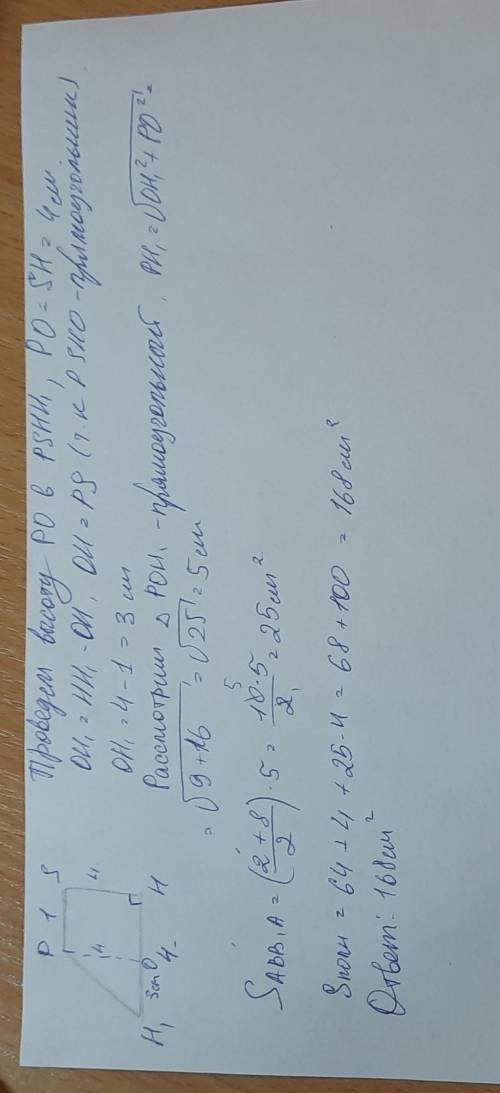 Проведем высоту PO в PSHH₁, PO = SH = 4 см.
OH₁ = HH₁ - OH, OH = PS (т.к PSHO - прямоугольник)
OH₁ = 4 - 1 = 3 см
Рассмотрим △ POH₁ - прямоугольный, PH₁ = √(OH₁² + PO²) =
= √(9 + 16) = √25 = 5 см
P 1 S
4 4
H₁ 3см O H
4
S ABB₁A = ((2 + 8)/2) · 5 = (10 · 5)/2 = 25 см²
Sполн = 64 + 4 + 25·4 = 68 + 100 = 168 см²
Ответ: 168 см²